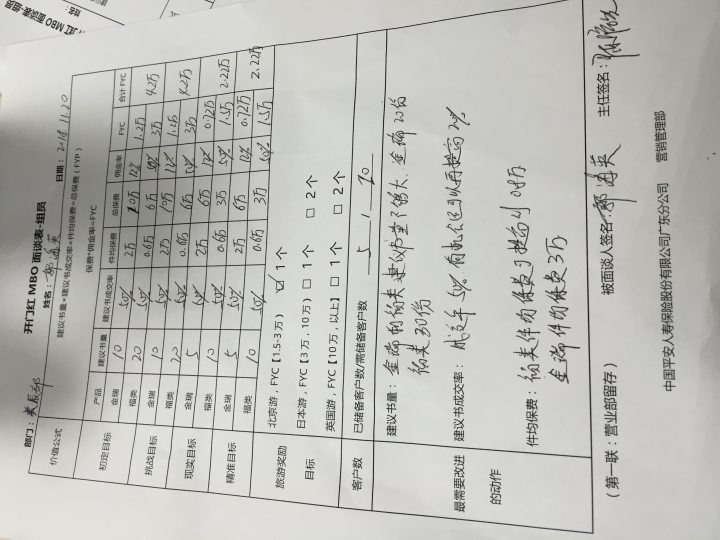 开门红 MBO 面谈表-组员
部门：
姓名：
日期：2018 11.20
价值公式
建议书量×建议书成交率×件均保费=总保费（FYP）
保费*佣金率=FYC
产品 建议书量 建议书成交率 件均保费 总保费 佣金率 FYC 合计 FYC
初定目标 金瑞 10 50% 2万 10万 12% 1.2万 4.2万
福类 20 50% 0.6万 6万 50% 3万
挑战目标 金瑞 10 50% 2万 10万 12% 1.2万 4.2万
福类 20 50% 0.6万 6万 50% 3万
现实目标 金瑞 5 50% 2万 6万 12% 0.72万 2.22万
福类 10 50% 0.6万 3万 50% 1.5万
精准目标 金瑞 5 50% 2万 6万 12% 0.72万 2.22万
福类 10 50% 0.6万 3万 50% 1.5万
旅游奖励目标
北京游，FYC【1.5-3 万】 ☑ 1 个
日本游，FYC【3 万，10 万） □ 1 个 □ 2 个
英国游，FYC【10 万，以上】 □ 1 个 □ 2 个
客户数 已储备客户数/需储备客户数 5 / 20
最需要改进的动作
建议书量：金瑞 福类 建议书 金瑞20份
福类30份
建议书成交率：成交率50% 有机会还可以再提高20%
件均保费：福类件均保费可提高到0.8万
金瑞件均保费3万
（第一联：营业部留存）
被面谈人签名：
主任签名：
中国平安人寿保险股份有限公司广东分公司 营销管理部